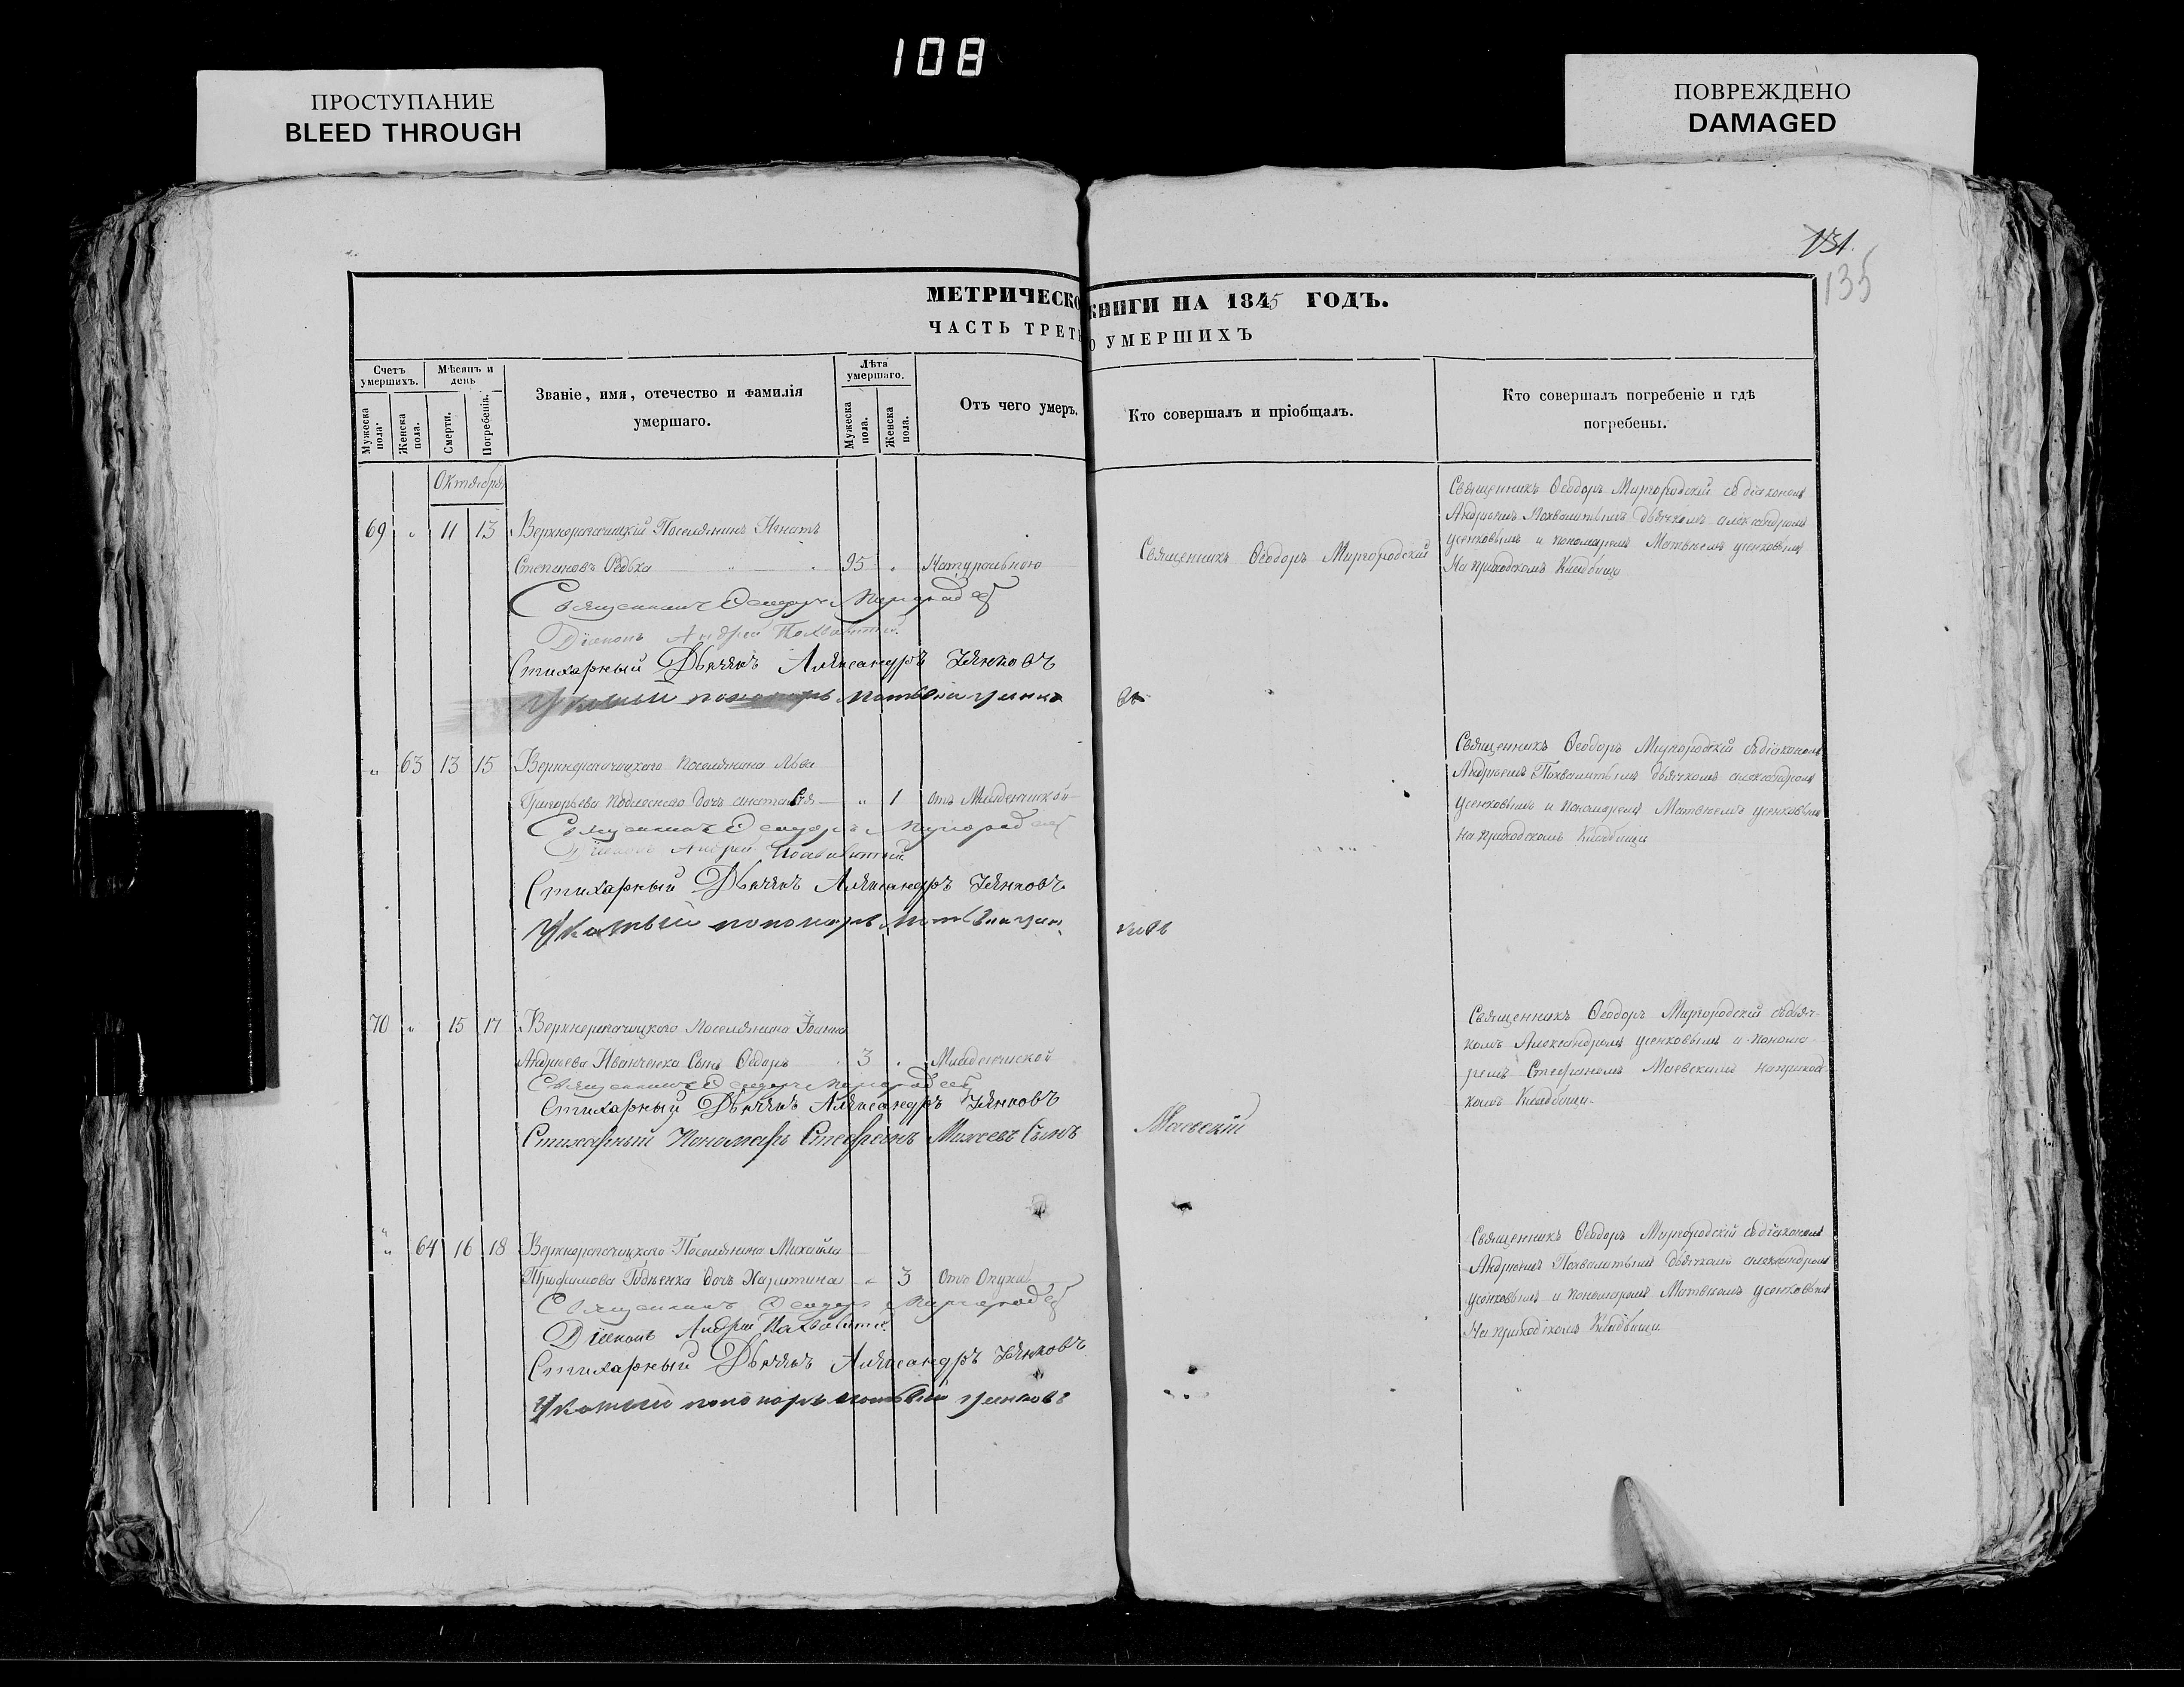 108
ПРОСТУПАНИЕ
BLEED THROUGH
ПОВРЕЖДЕНО
DAMAGED
131.
135
МЕТРИЧЕСКО КНИГИ НА 1845 ГОДЪ.
ЧАСТЬ ТРЕТЬ О УМЕРШИХЪ
Счетъ умершихъ.
Мѣсяцъ и день
Званіе, имя, отечество и фамилія умершаго.
Лѣта умершаго.
Отъ чего умеръ.
Кто совершалъ и пріобщалъ.
Кто совершалъ погребеніе и гдѣ погребены.
Мужеска пола.
Женска пола.
Смерти.
Погребенія.
Мужеска пола.
Женска пола.
Октября
69 " 11 13 Верхнерогачицкій Поселянинъ Игнатъ
Степановъ Редька 95 " Натурально
Священникъ Ѳеодоръ Миргородскій
Священникъ Ѳеодоръ Миргородскій съ діакономъ
Андреемъ Похвалитымъ дьячкомъ Александромъ
Усенковымъ и пономаремъ Матвѣемъ Усенковымъ
На приходскомъ Кладбищѣ
Священникъ Ѳеодоръ Миргородскій
Діаконъ Андрей Похвалитый
Стихарный Дьячекъ Александръ Усенковъ
Указный пономарь Матвѣй Усенковъ
" 63 13 15 Верхнерогачицкаго поселянина Льва
Григорьева Подлеснаго дочь Анастасія " 1 отъ Младенческой
Священникъ Ѳеодоръ Миргородскій съ діакономъ
Андреемъ Похвалитымъ дьячкомъ Александромъ
Усенковымъ и пономаремъ Матвѣемъ Усенковымъ
на приходскомъ Кладбищѣ
Священникъ Ѳеодоръ Миргородскій
Діаконъ Андрей Похвалитый
Стихарный Дьячекъ Александръ Усенковъ
Указный пономарь Матвѣй Усенковъ
70 " 15 17 Верхнерогачицкаго Поселянина Іоанна
Андреева Иванченка Сынъ Ѳедоръ 3 " Младенческой
Священникъ Ѳеодоръ Миргородскій съ дьяч-
комъ Александромъ Усенковымъ и понома-
ремъ Стефаномъ Маевскимъ на приход
комъ Кладбищѣ
Священникъ Ѳеодоръ Миргородскій
Стихарный Дьячекъ Александръ Усенковъ
Стихарный Пономарь Стефанъ Сынъ Маевскій
" 64 16 18 Верхнерогачицкаго Поселянина Михайла
Трофимова дочь Харитина " 3 Отъ Опуха
Священникъ Ѳеодоръ Миргородскій съ діакономъ
Андреемъ Похвалитымъ дьячкомъ Александромъ
Усенковымъ и пономаремъ Матвѣемъ Усенковымъ
На приходскомъ Кладбищѣ
Священникъ Ѳеодоръ Миргородскій
Діаконъ Андрей Похвалитый
Стихарный Дьячекъ Александръ Усенковъ
Указный пономарь Матвѣй Усенковъ